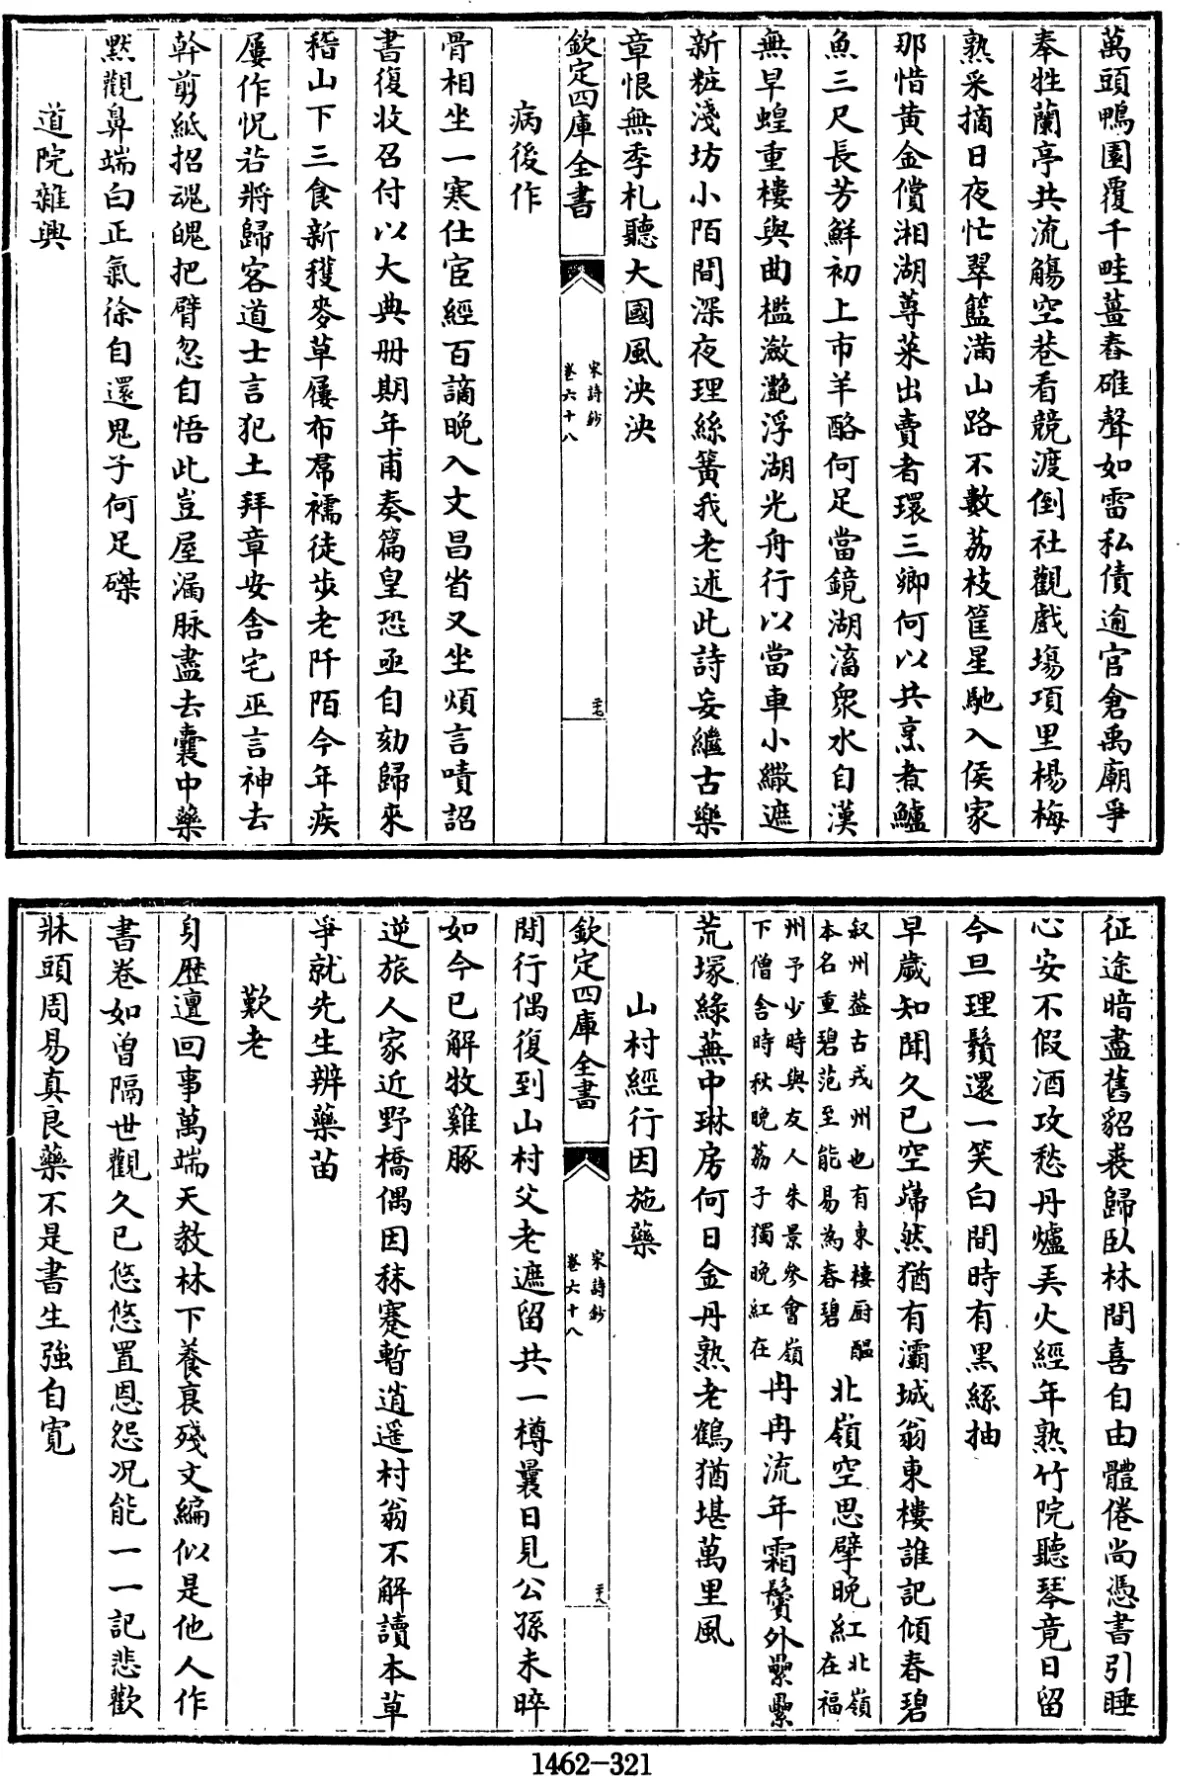 萬頭鴨園覆千畦薑舂碓聲如雷私債逾官倉禹廟爭
奉牲蘭亭共流觴空巷看競渡倒社觀戲塲項里楊梅
熟采摘日夜忙翠籃滿山路不數荔枝筐星馳入侯家
那惜黃金償湘湖蓴菜出賣者環三鄉何以共烹煮鱸
魚三尺長芳鮮初上市羊酪何足當鏡湖滀衆水自漢
無旱蝗重樓與曲檻瀲灧浮湖光舟行以當車小繖遮
新粧淺坊小陌間深夜理絲簧我老述此詩妄繼古樂
章恨無季札聽大國風泱泱
欽定四庫全書
宋詩鈔
卷六十八
病後作
骨相坐一寒仕宦經百謫晚入文昌省又坐煩言嘖詔
書復收召付以大典冊期年甫奏篇皇恐亟自劾歸來
稽山下三食新穫麥草屨布帬襦徒步老阡陌今年疾
屢作怳若將歸客道士言犯土拜章安舍宅巫言神去
幹剪紙招魂魄把臂忽自悟此豈屋漏脉盡去囊中藥
默觀鼻端白正氣徐自還鬼子何足磔
道院雜興
征途暗盡舊貂裘歸臥林間喜自由體倦尚憑書引睡
心安不假酒攻愁丹爐弄火經年熟竹院聽琴竟日留
今旦理鬚還一笑白間時有黑絲抽
早歲知聞久已空巋然猶有灞城翁東樓誰記傾春碧
叙州葢古戎州也有東樓厨醖
本名重碧范至能易為春碧
北嶺空思擘晚紅
北嶺
在福
州予少時與友人朱景參會嶺
下僧舍時秋晚荔子獨晚紅在
冉冉流年霜鬢外纍纍
荒塚綠蕪中琳房何日金丹熟老鶴猶堪萬里風
山村經行因施藥
欽定四庫全書
宋詩鈔
卷六十八
閒行偶復到山村父老遮留共一樽曩日見公孫未晬
如今已解牧雞豚
逆旅人家近野橋偶因秣蹇暫逍遥村翁不解讀本草
爭就先生辨藥苗
歎老
身歴邅回事萬端天教林下養衰殘文編似是他人作
書卷如曾隔世觀久已悠悠置恩怨况能一一記悲歡
牀頭周易真良藥不是書生強自寛
1462-321